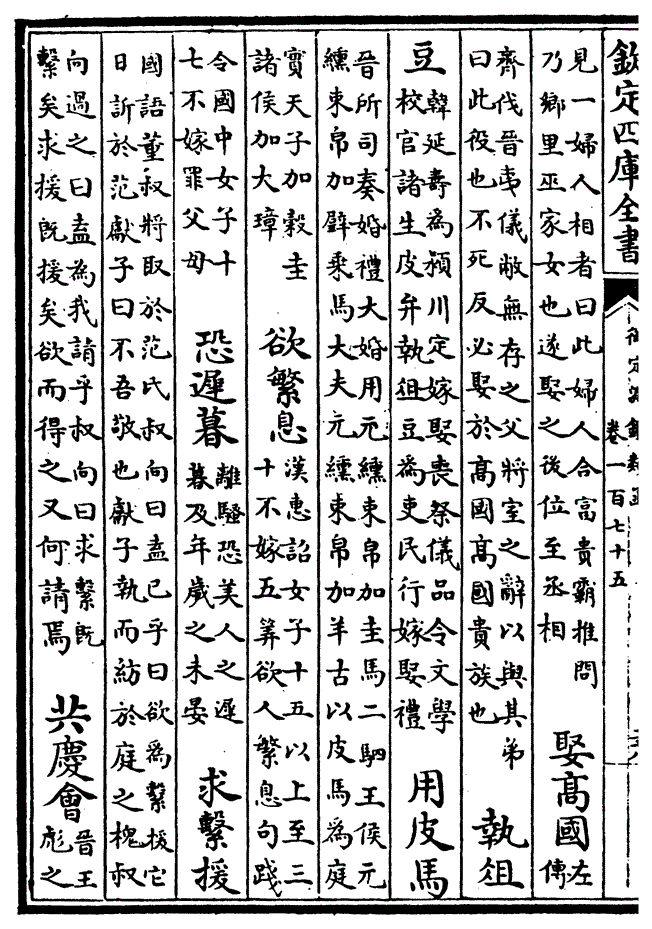 欽定四庫全書
卷一百七十五
見一婦人相者曰此婦人合富貴霸推問
乃鄉里巫家女也遂娶之後位至丞相
娶高國
左
傳
齊伐晉夷儀敝無存之父將室之辭以與其弟
曰此役也不死反必娶於高國高國貴族也
執俎
豆
韓延壽為潁川定嫁娶喪祭儀品令文學
校官諸生皮弁執俎豆為吏民行嫁娶禮
用皮馬
晉所司奏婚禮大婚用元纁束帛加圭馬二駟王侯元
纁束帛加璧乘馬大夫元纁束帛加羊古以皮馬為庭
實天子加穀圭
諸侯加大璋
欲繁息
漢惠詔女子十五以上至三
十不嫁五筭欲人繁息句踐
令國中女子十
七不嫁罪父母
恐遲暮
離騷恐美人之遲
暮及年歲之未晏
求繫援
國語董叔將取於范氏叔向曰盍已乎曰欲為繫援它
日訴於范獻子曰不吾敬也獻子執而紡於庭之槐叔
向過之曰盍為我請乎叔向曰求繫既
繫矣求援既援矣欲而得之又何請焉
共慶會
晉王
彪之